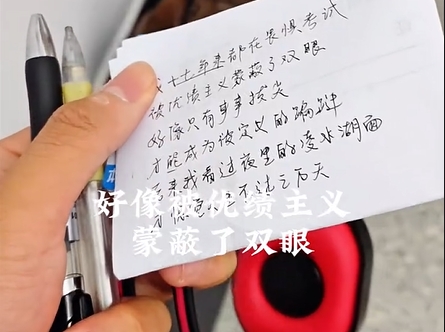 我十七年来都在畏惧考试
被优绩主义蒙蔽了双眼
好像只有事事拔尖
才能成为被定义的
看过夜里的凌水湖面
不过三五天
好像被优绩主义
蒙蔽了双眼